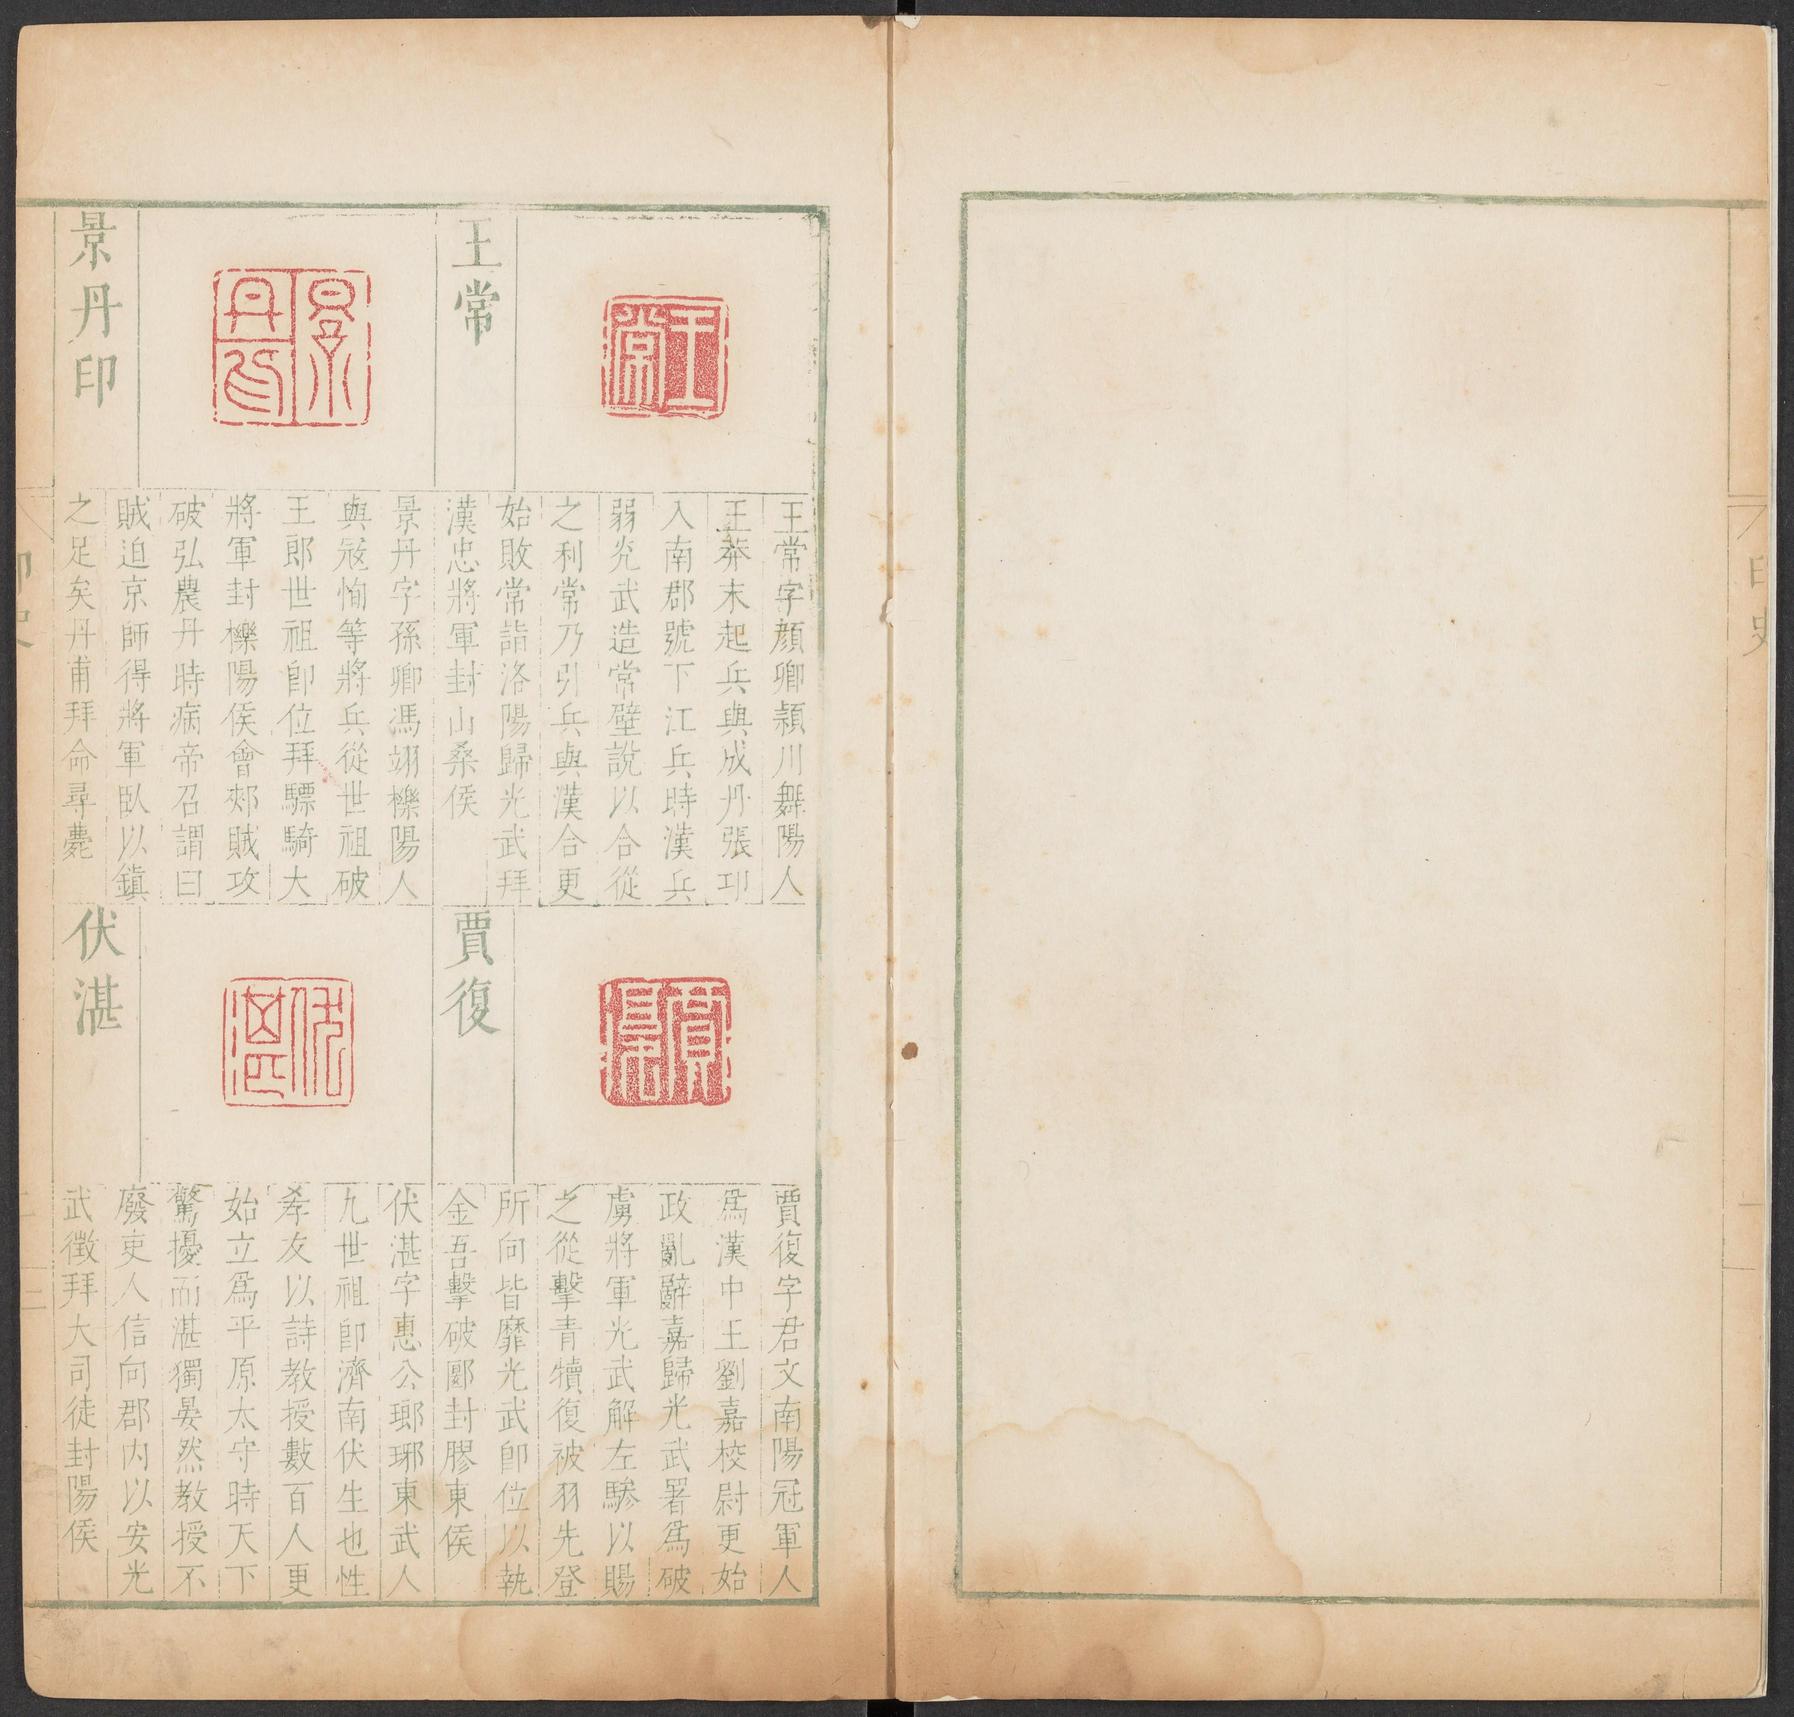 印史
王常
王常字顏卿潁川舞陽人
王莽末起兵與成丹張卭
入南郡號下江兵時漢兵
弱光武造常壁說以合從
之利常乃引兵與漢合更
始敗常詣洛陽歸光武拜
漢忠將軍封山桑侯
景丹印
景丹字孫卿馮翊櫟陽人
與宼恂等將兵從世祖破
王郎世祖卽位拜驃騎大
將軍封櫟陽侯會郟賊攻
破弘農丹時病帝召謂曰
賊迫京師得將軍臥以鎮
之足矣丹甫拜命尋薨
賈復
賈復字君文南陽冠軍人
爲漢中王劉嘉校尉更始
政亂辭嘉歸光武署爲破
虜將軍光武解左驂以賜
之從擊青犢復被羽先登
所向皆靡光武卽位以執
金吾擊破郾封膠東侯
伏湛
伏湛字惠公瑯琊東武人
九世祖卽濟南伏生也性
孝友以詩教授數百人更
始立爲平原太守時天下
驚擾而湛獨晏然教授不
廢吏人信向郡內以安光
武徵拜大司徒封陽侯
印史
二